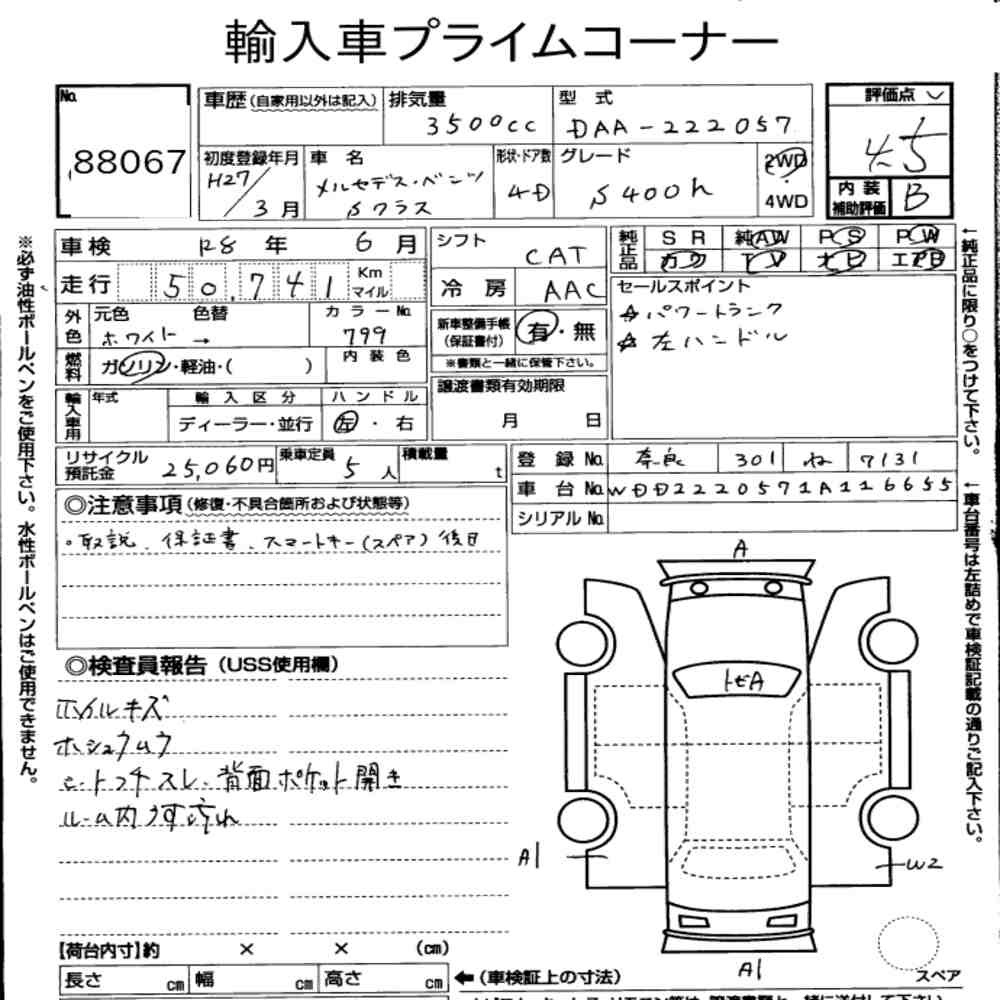 輸入車プライムコーナー
No.
88067
車歴(自家用以外は記入)
排気量
3500cc
型式
DAA-222057
評価点
4.5
初度登録年月
H27/3月
車名
メルセデス・ベンツ
Sクラス
形状・ドア数
4D
グレード
S400h
2WD
4WD
内装
補助評価
B
車検
R8年6月
シフト
CAT
純正品
SR 純AW PS PW
カワ TV ナビ エアB
走行
50,741
Km
マイル
冷房
AAC
セールスポイント
☆パワートランク
☆左ハンドル
外色
元色
色替
カラーNo.
ホワイト → 799
新車整備手帳
(保証書付)
有・無
※書類と一緒に保管下さい。
燃料
ガソリン・軽油・( )
内装色
譲渡書類有効期限
月 日
輸入車用
年式
輸入区分
ハンドル
ディーラー・並行
左・右
リサイクル
預託金
25,060円
乗車定員
5人
積載量
t
登録No.
奈良 301 ね 7131
車台No.
WDD2220571A116655
シリアルNo.
◎注意事項(修復・不具合箇所および状態等)
・取説、保証書、スマートキー(スペア)後日
◎検査員報告(USS使用欄)
ホイルキズ
ホシュウムラ
シートコチスレ・背面ポケット開き
ルーム内うす汚れ
A
トビA
A1
W2
A1
スペア
【荷台内寸】約 × × (cm)
長さ cm 幅 cm 高さ cm
←(車検証上の寸法)
※必ず油性ボールペンをご使用下さい。水性ボールペンはご使用できません。
←純正品に限り○をつけて下さい。
←車台番号は左詰めで車検証記載の通りご記入下さい。